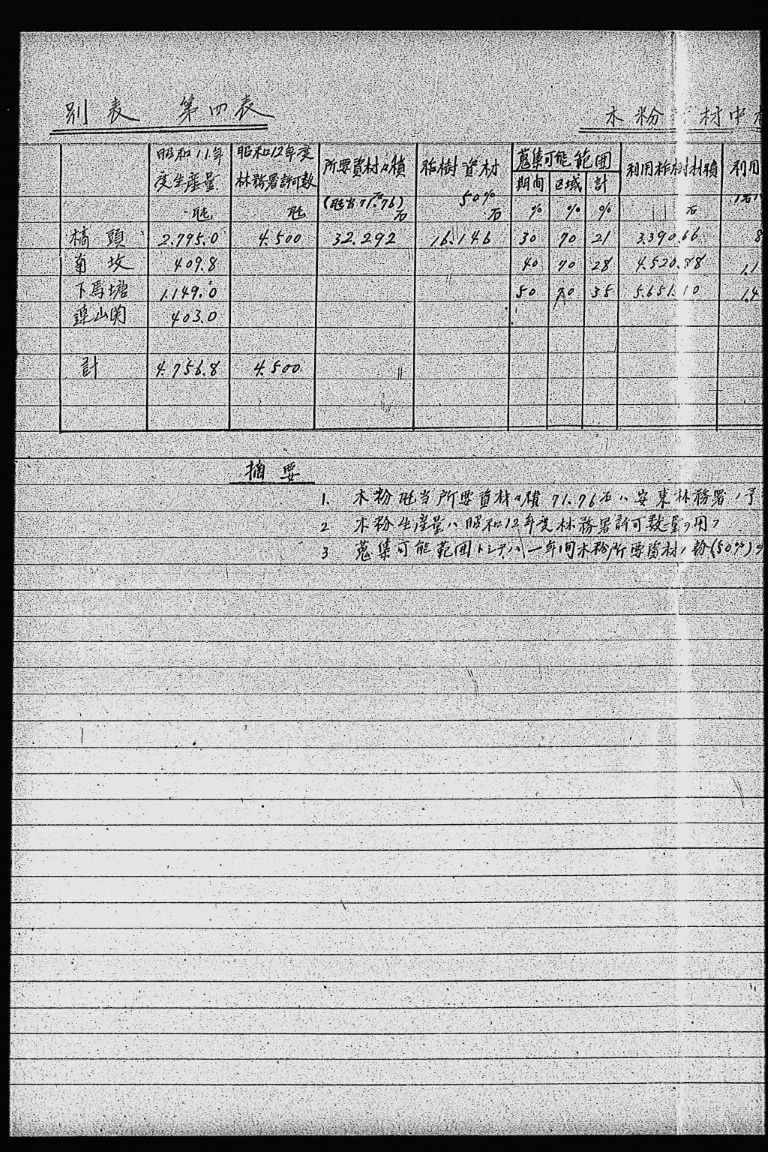 別表 第四表
木粉 材中
昭和11年度生産量 瓩 昭和12年度林務署許可数 瓩 所要資材ノ積 (瓩当71.76)石 柞樹資材 50% 石 蒐集可能範囲 期間 % 区域 % 計 % 利用柞樹材積 石 利用
橋頭 2.795.0 4.500 32.292 16.146 30 70 21 3.390.66 8
南坟 409.8 40 70 28 4.520.88 1.1
下馬塘 1.149.0 50 70 35 5.651.10 1.4
連山関 403.0
計 4.756.8 4.500
摘要
1. 木粉瓩当所要資材ノ積 71.76石ハ安東林務署ノ予
2 木粉生産量ハ昭和12年度林務署許可数量ヲ用フ
3 蒐集可能範囲トシテハ一年間木粉所要資材ノ粉(50%)